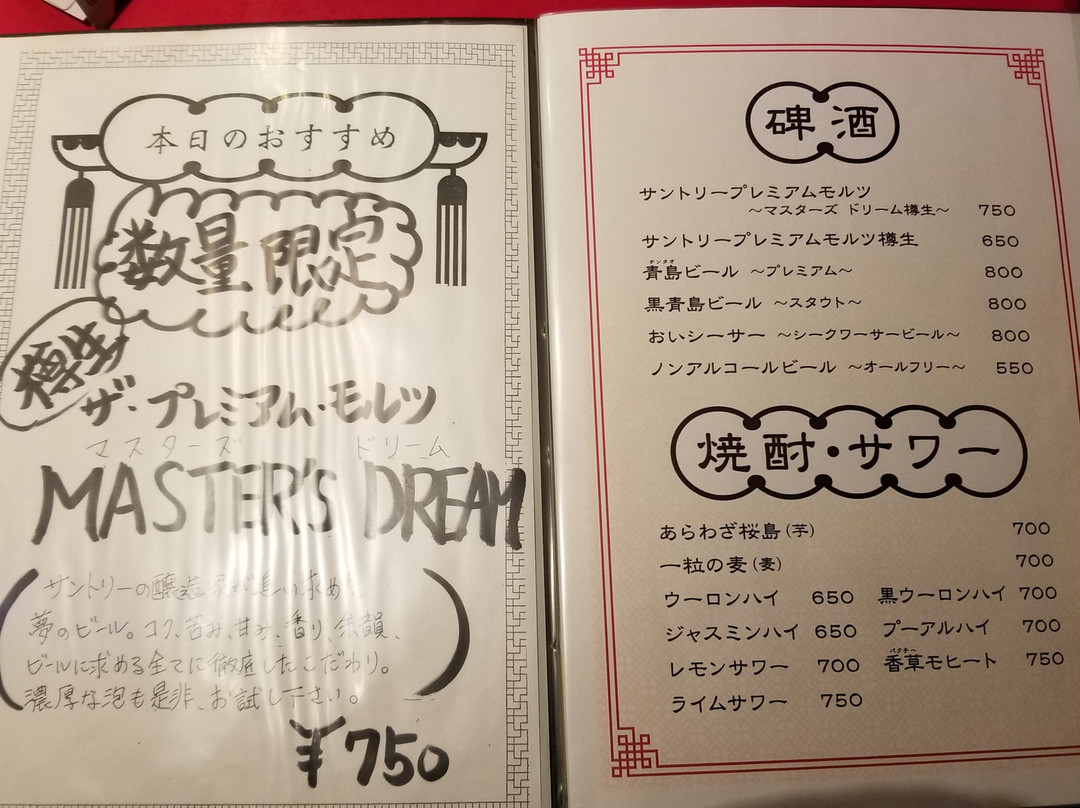 本日のおすすめ
数量限定
樽生
ザ・プレミアム・モルツ
マスターズ ドリーム
MASTER'S DREAM
サントリーの醸造家が追い求めた
夢のビール。コク、苦み、甘み、香り、余韻、
ビールに求める全てに徹底したこだわり。
濃厚な泡も是非、お試し下さい。
¥750
碑酒
サントリープレミアムモルツ
〜マスターズ ドリーム樽生〜 750
サントリープレミアムモルツ樽生 650
チンタオ
青島ビール 〜プレミアム〜 800
黒青島ビール 〜スタウト〜 800
おいシーサー 〜シークワーサービール〜 800
ノンアルコールビール 〜オールフリー〜 550
焼酎・サワー
あらわざ桜島(芋) 700
一粒の麦(麦) 700
ウーロンハイ 650 黒ウーロンハイ 700
ジャスミンハイ 650 プーアルハイ 700
パクチー
レモンサワー 700 香草モヒート 750
ライムサワー 750